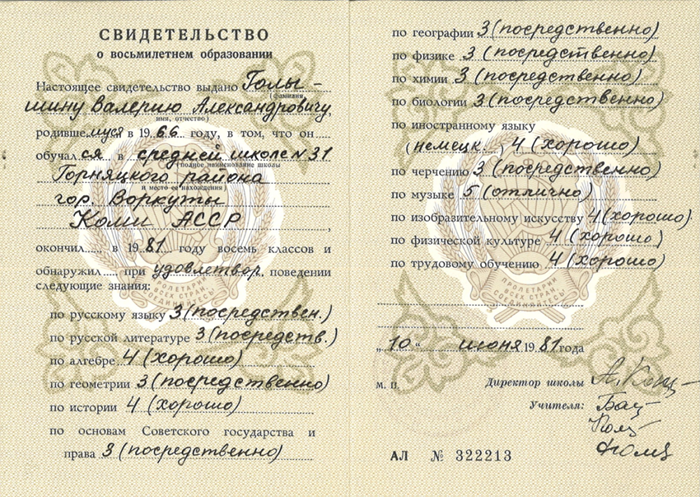 СВИДЕТЕЛЬСТВО
о восьмилетнем образовании
Настоящее свидетельство выдано Голы-
(фамилия,
шину Валерию Александровичу,
имя, отчество)
родившемуся в 1966 году, в том, что он
обучался в средней школе № 31
(полное наименование школы
Горняцкого района
и место ее нахождения)
гор. Воркуты
Коми АССР
окончил в 1981 году восемь классов и
обнаружил при удовлетвор. поведении
следующие знания:
по русскому языку 3 (посредствен.)
по русской литературе 3 (посредств.)
по алгебре 4 (хорошо)
по геометрии 3 (посредственно)
по истории 4 (хорошо)
по основам Советского государства и
права 3 (посредственно)
по географии 3 (посредственно)
по физике 3 (посредственно)
по химии 3 (посредственно)
по биологии 3 (посредственно)
по иностранному языку
(немецк.) 4 (хорошо)
по черчению 3 (посредственно)
по музыке 5 (отлично)
по изобразительному искусству 4 (хорошо)
по физической культуре 4 (хорошо)
по трудовому обучению 4 (хорошо)
„10" июня 1981 года
М. П. Директор школы
Учителя:
АЛ № 322213